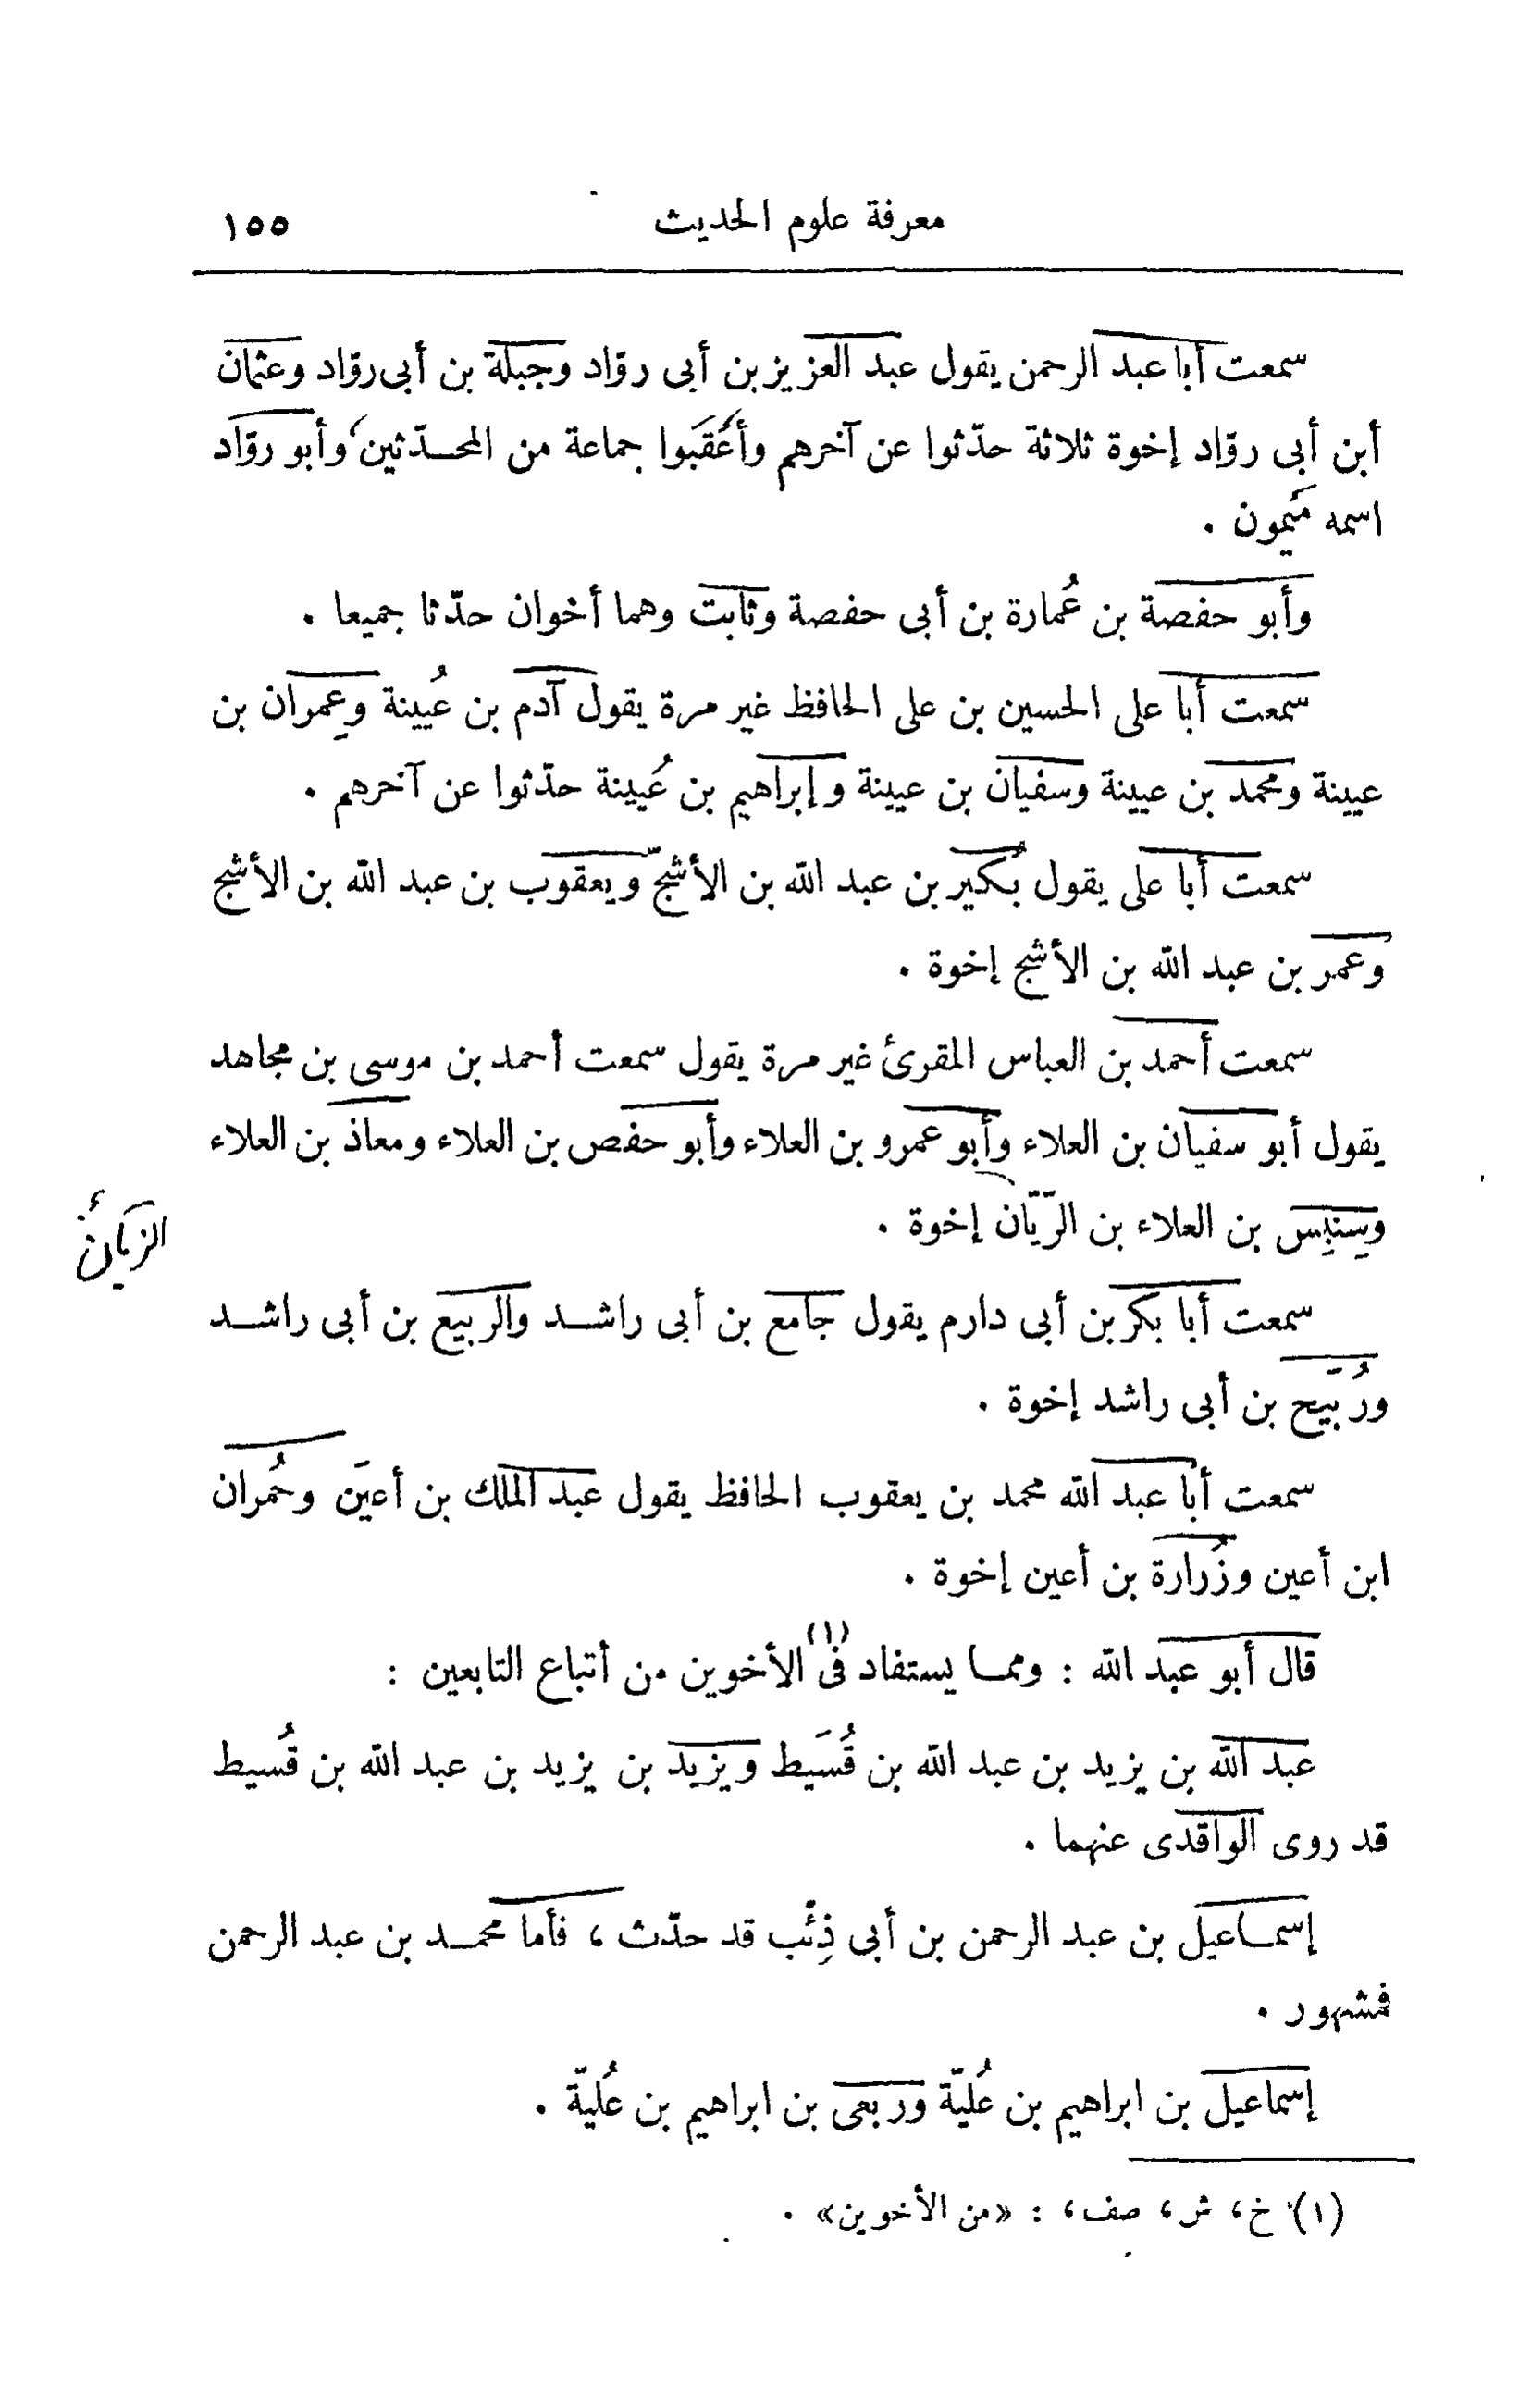 معرفة علوم الحديث ١٥٥
سمعت أبا عبد الرحمن يقول عبد العزيز بن أبى روّاد وجبلة بن أبى روّاد وعثمان
أبن أبى روّاد إخوة ثلاثة حدّثوا عن آخرهم وأعْقَبوا جماعة من المحدّثين، وأبو روّاد
اسمه مَيمون .
وأبو حفصة بن عُمارة بن أبى حفصة وثابت وهما أخوان حدّثا جميعا .
سمعت أبا على الحسين بن على الحافظ غير مرة يقول آدم بن عُيينة وعِمران بن
عيينة ومحمد بن عيينة وسفيان بن عيينة وإبراهيم بن عُيينة حدّثوا عن آخرهم .
سمعت أبا على يقول بُكير بن عبد الله بن الأشجّ ويعقوب بن عبد الله بن الأشج
وعمر بن عبد الله بن الأشج إخوة .
سمعت أحمد بن العباس المقرئ غير مرة يقول سمعت أحمد بن موسى بن مجاهد
يقول أبو سفيان بن العلاء وأبو عمرو بن العلاء وأبو حفص بن العلاء ومعاذ بن العلاء
وسِنبِس بن العلاء بن الرّيّان إخوة .
سمعت أبا بكر بن أبى دارم يقول جامع بن أبى راشد والربيع بن أبى راشد
ورُبَيح بن أبى راشد إخوة .
سمعت أبا عبد الله محمد بن يعقوب الحافظ يقول عبد الملك بن أعيَن وحُمران
ابن أعين وزُرارة بن أعين إخوة .
قال أبو عبد الله : ومما يستفاد فى (١) الأخوين من أتباع التابعين :
عبد الله بن يزيد بن عبد الله بن قُسَيط ويزيد بن يزيد بن عبد الله بن قُسيط
قد روى الواقدى عنهما .
إسماعيل بن عبد الرحمن بن أبى ذِئْب قد حدّث ، فأما محمد بن عبد الرحمن
فمشهور .
إسماعيل بن ابراهيم بن عُليّة وربعى بن ابراهيم بن عُليّة .
(١) خ ، ش ، صف ، : «من الأخوين» .